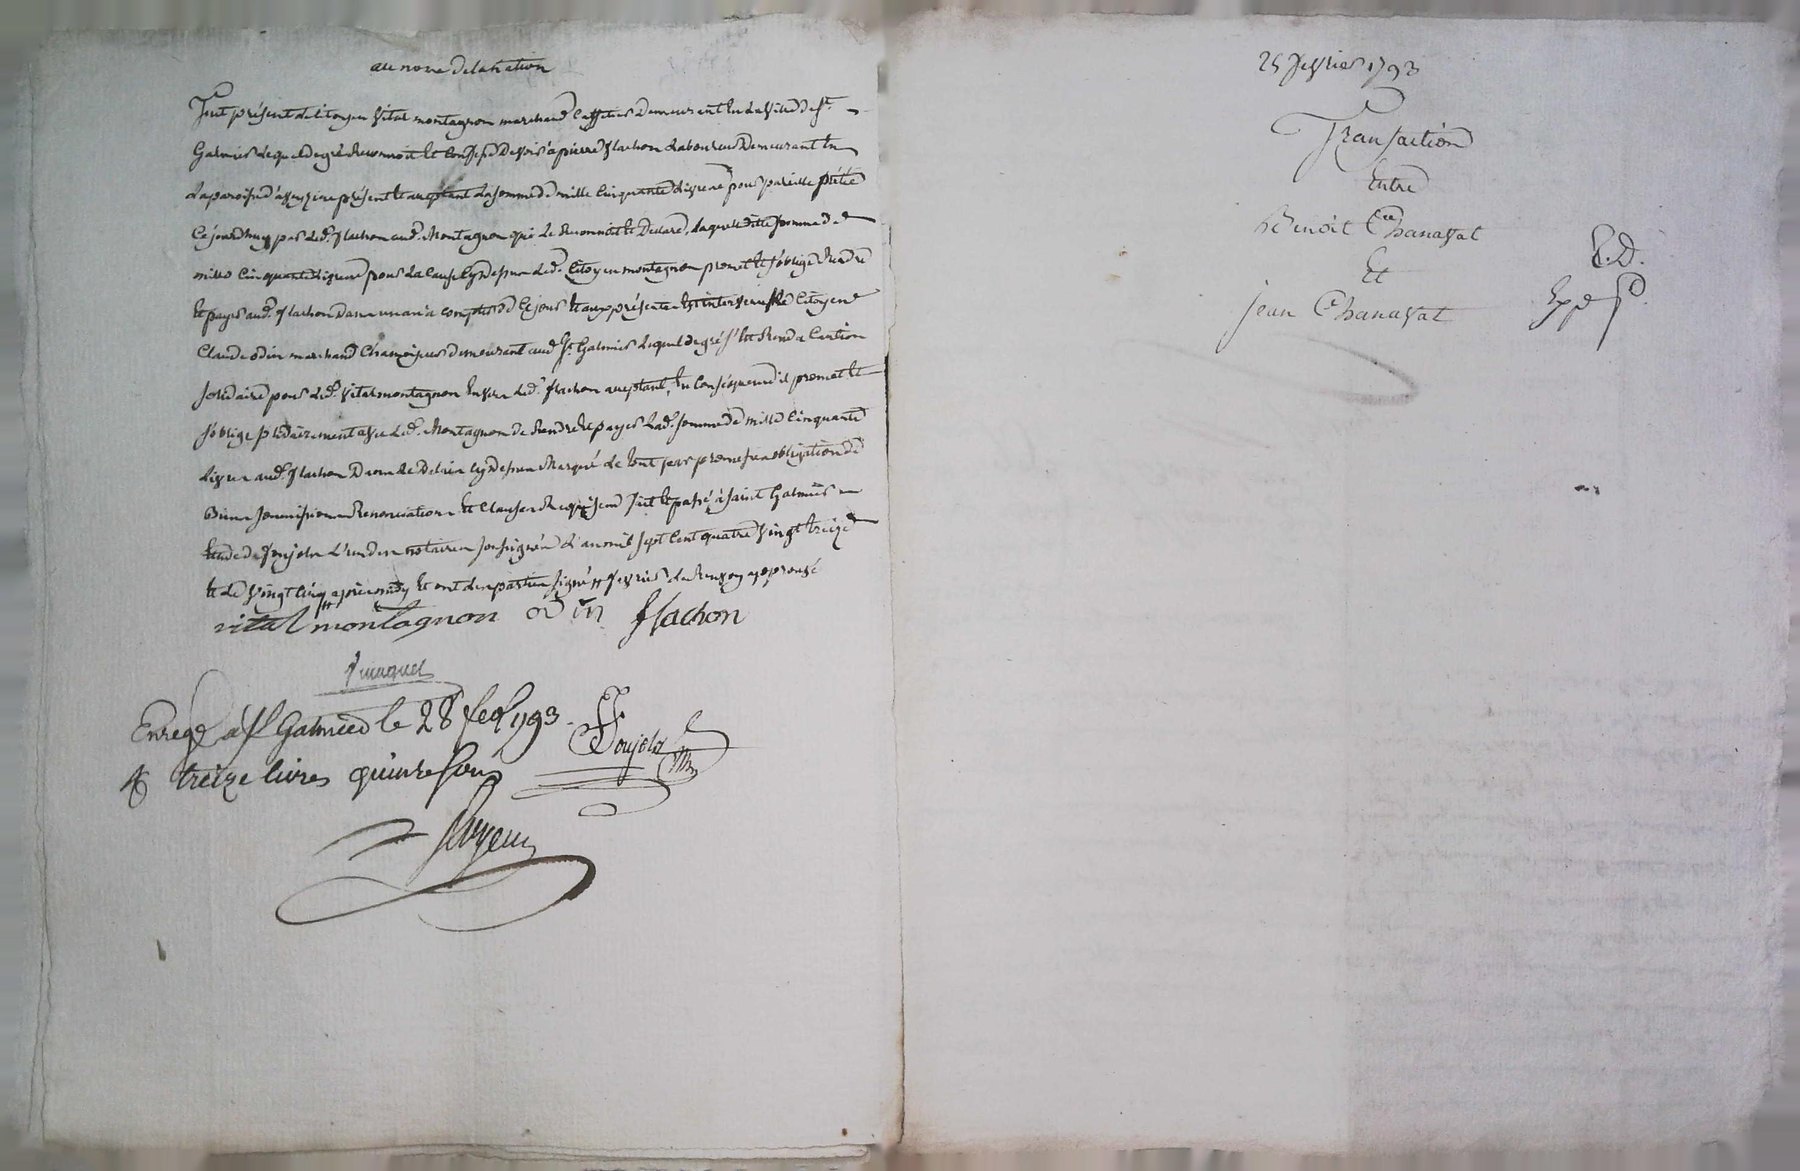 au nom de la nation
Fut présent le citoyen vital montagnon marchand caffetier demeurant en la ville de St
Galmier lequel de gré reconnoit et confesse devoir à pierre flachon laboureur demeurant en
la paroisse d'aveyzieu présent et acceptant la somme de mille cinquante livres pour pareille prétée
ce jourd'huy par led. flachon aud. Montagnon qui le reconnoit et declare, laquelle ditte somme de
mille cinquante livres pour la cause cy dessus led. citoyen montagnon promet et s'oblige rendre
et payer aud. flachon dans un an à compter de ce jour et aux présentes est intervenu le citoyen
Claude odin marchand chamoiseur demeurant aud. St Galmier lequel de gré s'est rendu caution
solidaire pour led. vital montagnon envers led. flachon acceptant, en conséquence il promet et
s'oblige solidairement avec led. Montagnon de rendre et payer lad. somme de mille cinquante
livres aud. flachon dans le delai cy dessus marqué le tout par promesses obligation de
biens soumissions renonciations et clauses requises fait et passé à saint Galmier
étude de foujols l'un des notaires soussignés l'an mil sept cent quatre vingt treize
et le vingt cinq après midy et ont les parties signé # fevrier le renvoy approuvé
vital montagnon odin flachon
Enregé à St Galmier le 28 fev 1793
R treize livres quinze sous
foujols
25 fevrier 1793
Transaction
Entre
Benoit Chanavat
Et
jean Chanavat
E.D.
Exp